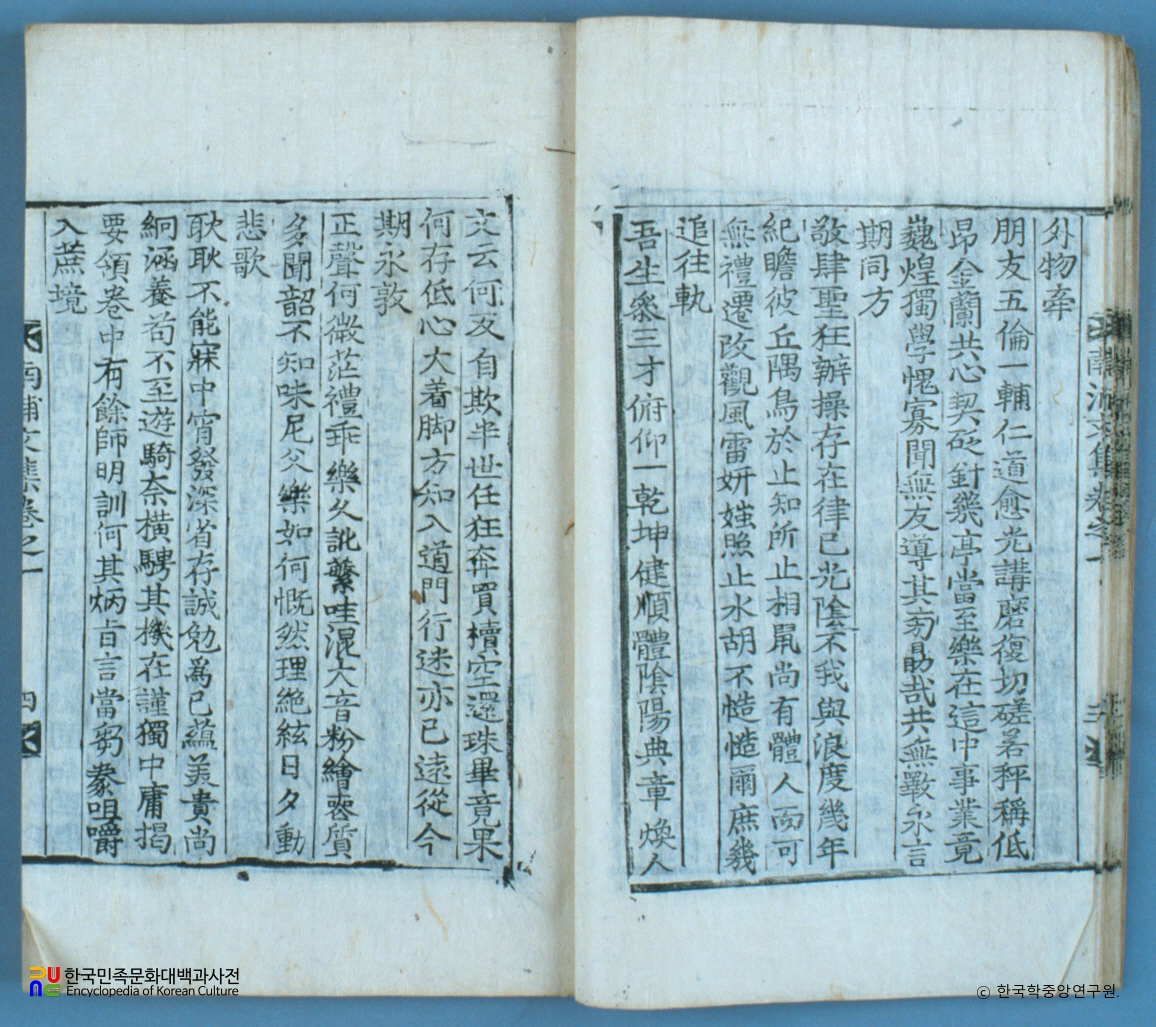 外物牽
朋友五倫一輔仁道愈光講磨復切磋若秤稱低
昂金蘭共心契砭針幾亭當至樂在這中事業竟
巍煌獨學愧寡聞無友導其方勗哉共無斁永言
期同方
敬肆聖狂辦操存在律已光陰不我與浪度幾年
紀瞻彼丘隅鳥於止知所止相鼠尚有體人而可
無禮遷改觀風雷妍媸照止水胡不慥慥爾庶幾
追往軌
吾生叅三才俯仰一乾坤健順體陰陽典章煥人
文云何反自欺半世任狂奔買櫝空還珠畢竟果
何存低心大着脚方知入道門行迷亦已遠從今
期永敦
正聲何微茫禮乖樂久訛繁哇混大音粉繪喪質
多聞韶不知味尼父樂如何慨然理絶絃日夕動
悲歌
耿耿不能寐中宵發深省存誠勉爲已蘊美貴尚
絅涵養苟不至遊騎奈橫騁其機在謹獨中庸揭
要領卷中有餘師明訓何其炳旨言當芻豢咀嚼
入蔗境
南浦文集卷之一
四
南浦文集卷之一
한국민족문화대백과사전
Encyclopedia of Korean Culture
© 한국학중앙연구원.